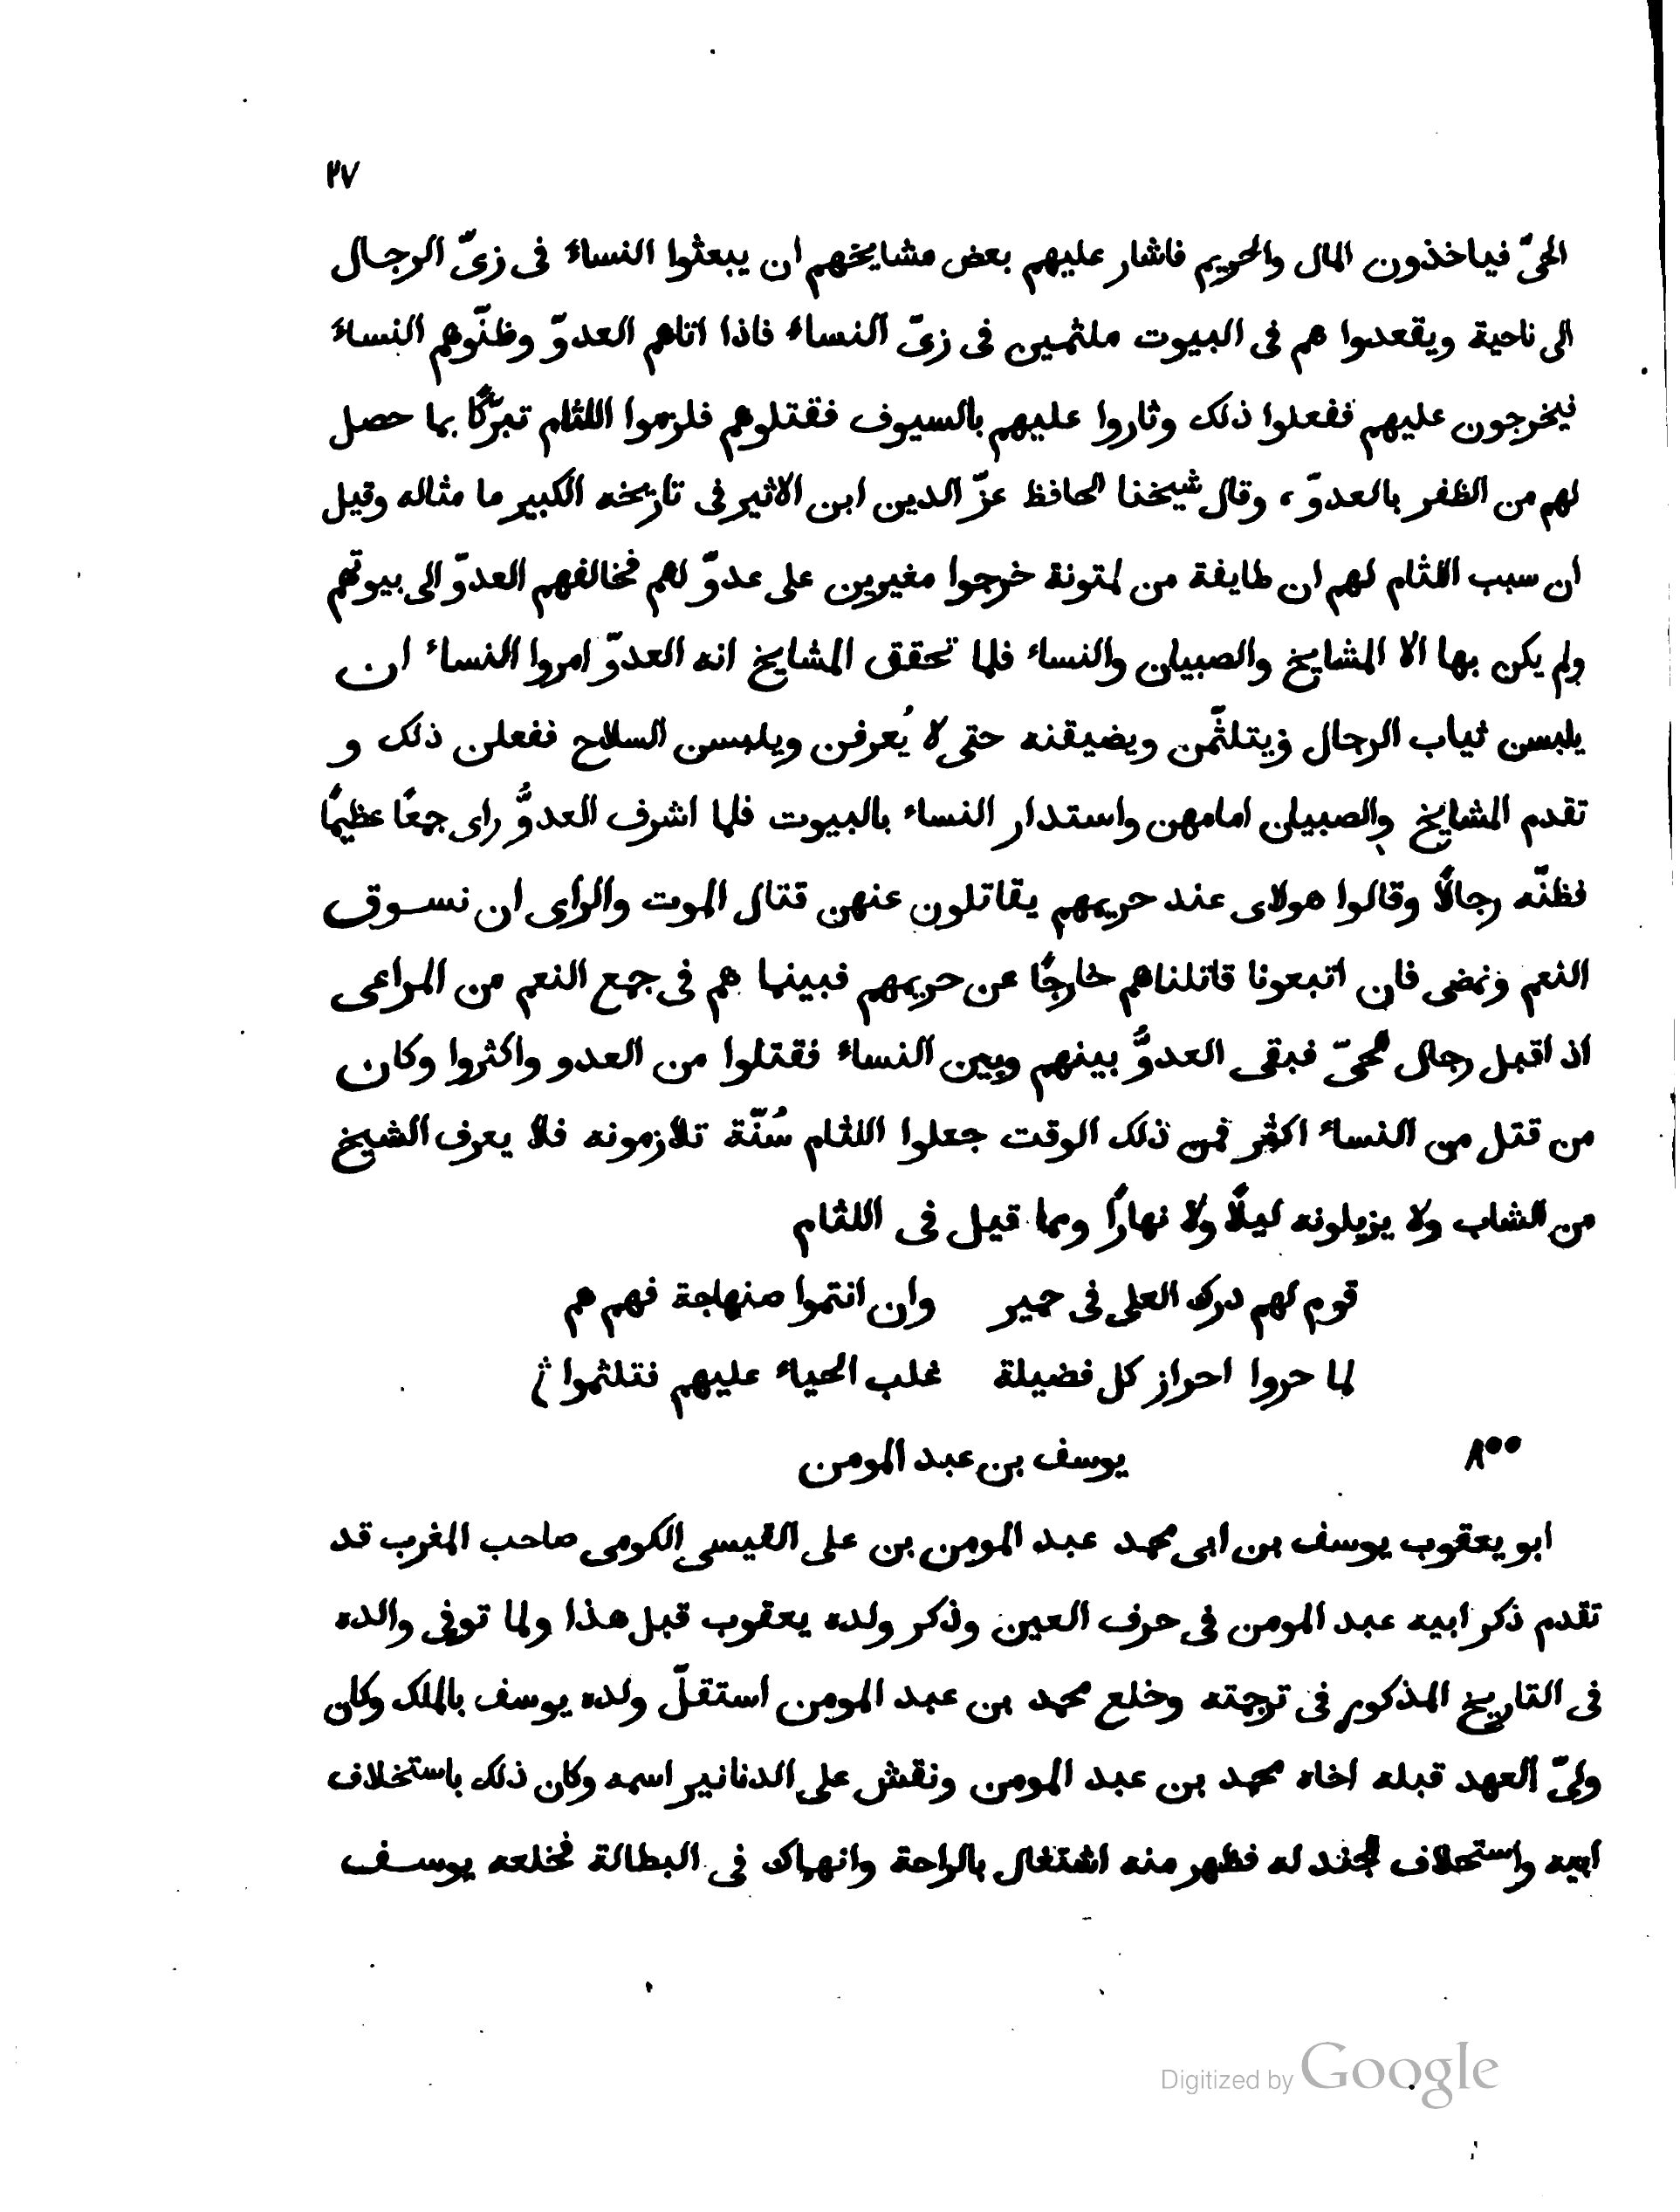 ٢٧
الحىّ فياخذون المال والحريم فاشار عليهم بعض مشايخهم ان يبعثوا النساء فى زىّ الرجال
الى ناحية ويقعدوا هم فى البيوت ملثمين فى زىّ النساء فاذا اتاهم العدوّ وظنّوهم النساء
فيخرجون عليهم ففعلوا ذلك وثاروا عليهم بالسيوف فقتلوهم فلزموا اللثام تبرّكًا بما حصل
لهم من الظفر بالعدوّ، وقال شيخنا الحافظ عزّ الدين ابن الاثير فى تاريخه الكبير ما مثاله وقيل
ان سبب اللثام لهم ان طايفة من لمتونة خرجوا مغيرين على عدوّ لهم فخالفهم العدوّ الى بيوتهم
ولم يكن بها الا المشايخ والصبيان والنساء فلما تحقق المشايخ انه العدوّ امروا النساء ان
يلبسن ثياب الرجال ويتلثّمن ويضيقنه حتى لا يُعرفن ويلبسن السلاح ففعلن ذلك و
تقدم المشايخ والصبيان امامهن واستدار النساء بالبيوت فلما اشرف العدوُّ راى جمعًا عظيمًا
فظنّه رجالًا وقالوا هولاى عند حريمهم يقاتلون عنهن قتال الموت والراى ان نسوق
النعم ونمضى فان اتبعونا قاتلناهم خارجًا عن حريمهم فبينما هم فى جمع النعم من المراعى
اذ اقبل رجال الحىّ فبقى العدوُّ بينهم وبين النساء فقتلوا من العدو واكثروا وكان
من قتل من النساء اكثر فمن ذلك الوقت جعلوا اللثام سُنّة تلازمونه فلا يعرف الشيخ
من الشاب ولا يزيلونه ليلًا ولا نهارًا ومما قيل فى اللثام
قوم لهم درك العلى فى حمير وان انتموا صنهاجة فهم هم
لما حروا احراز كل فضيلة غلب الحياء عليهم فتلثموا
٨٠٠ يوسف بن عبد المومن
ابو يعقوب يوسف بن ابى محمد عبد المومن بن على القيسى الكومى صاحب المغرب قد
تقدم ذكر ابيه عبد المومن فى حرف العين وذكر ولده يعقوب قبل هذا ولما توفى والده
فى التاريخ المذكور فى ترجمته وخلع محمد بن عبد المومن استقلّ ولده يوسف بالملك وكان
ولىّ العهد قبله اخاه محمد بن عبد المومن ونقش على الدنانير اسمه وكان ذلك باستخلاف
ابيه واستحلاف الجند له فظهر منه اشتغال بالراحة وانهماك فى البطالة فخلعه يوسف
Digitized by Google